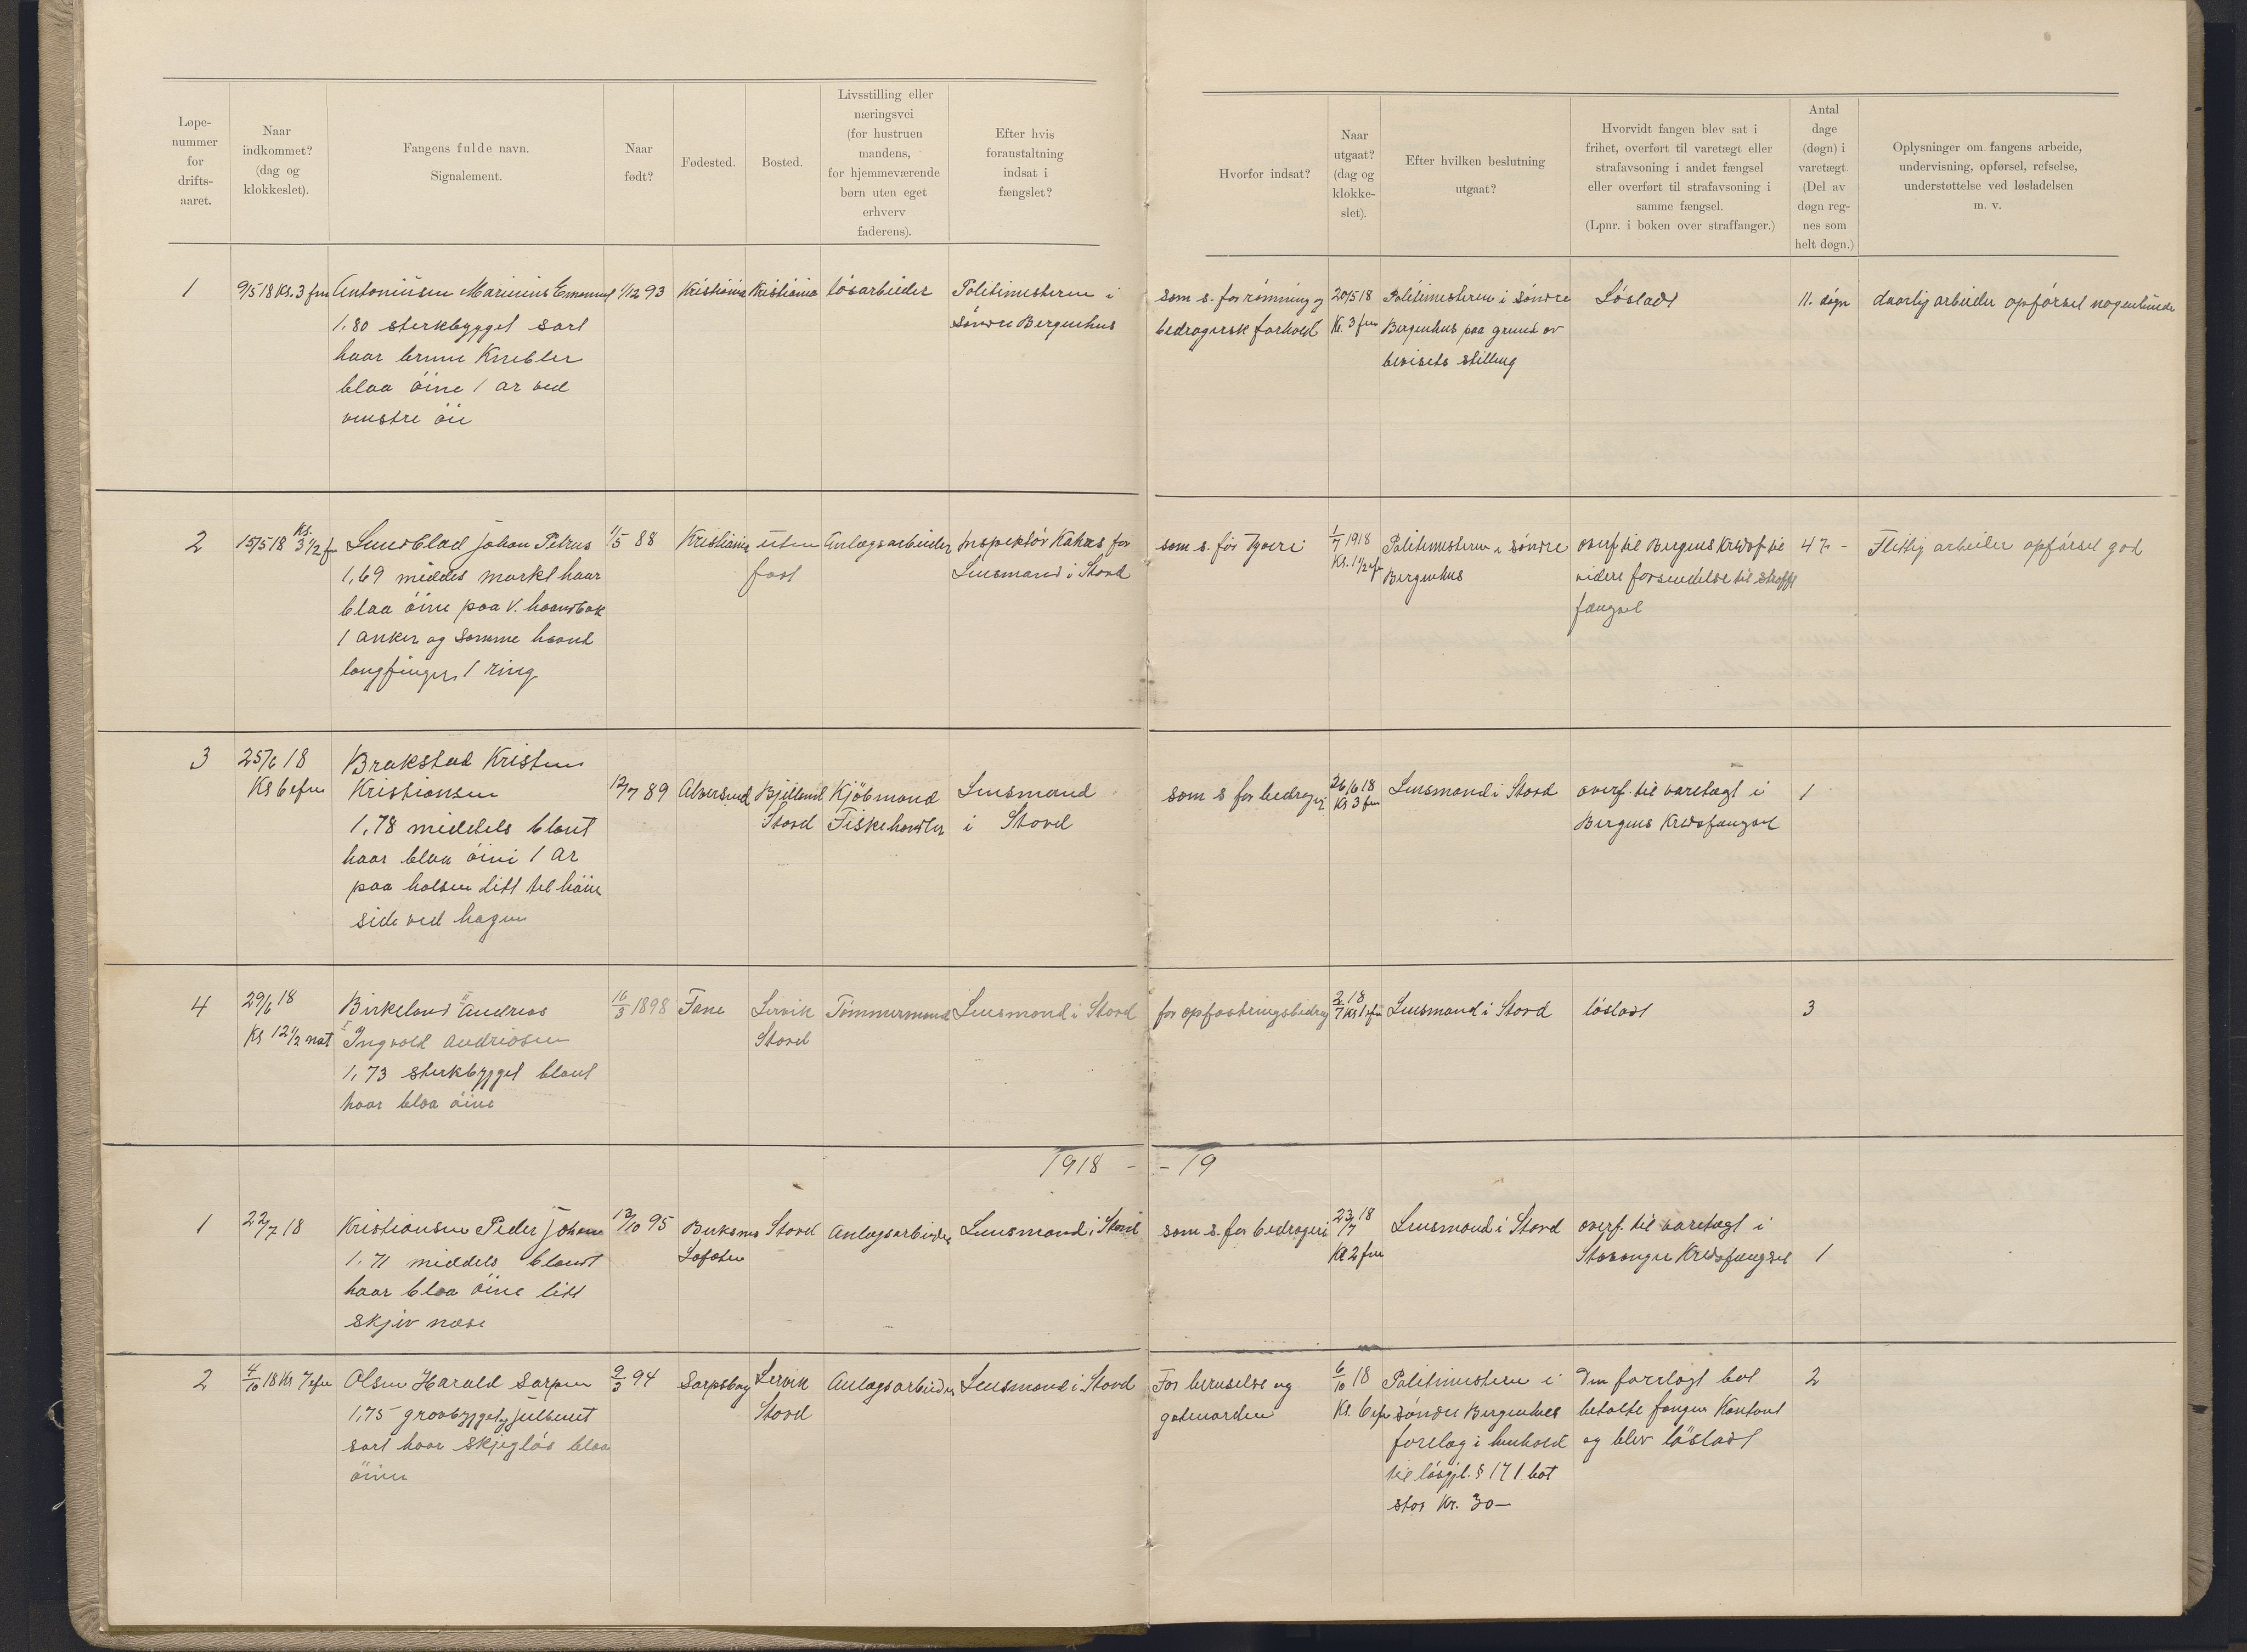 Løpe-
nummer
for
drifts-
aaret.
Naar
indkommet?
(dag og
klokkeslet).
Fangens fulde navn.
Signalement.
Naar
født?
Fødested.
Bosted.
Livsstilling eller
næringsvei
(for hustruen
mandens,
for hjemmeværende
børn uten eget
erhverv
faderens).
Efter hvis
foranstaltning
indsat i
fængslet?
Hvorfor indsat?
Naar
utgaat?
(dag og
klokke-
slet).
Efter hvilken beslutning
utgaat?
Hvorvidt fangen blev sat i
frihet, overført til varetægt eller
strafavsoning i andet fængsel
eller overført til strafavsoning i
samme fængsel.
(Lpnr. i boken over straffanger.)
Antal
dage
(døgn) i
varetægt.
(Del av
døgn reg-
nes som
helt døgn.)
Oplysninger om fangens arbeide,
undervisning, opførsel, refselse,
understøttelse ved løsladelsen
m. v.
1
9/5 18 Kl. 3 fm
Antoniusen Marinius Emanuel
1,80 sterkbygget sort
haar brune Knebler
blaa öine 1 ar ved
venstre öie
1/12 93
Kristiania
Kristiania
lösarbeider
Politimesteren i
Söndre Bergenhus
som s. for römning og
bedragersk forhold
20/5 18
Kl. 3 fm
Politimesteren i söndre
Bergenhus paa grund av
bevisets stilling
Lösladt
11. dögn
daarlig arbeider opförsel nogenlunde
2
15/5 18 Kl. 3 1/2 fm
Lundblad Johan Petrus
1,69 middels mørkt haar
blaa öine paa v. haandbak
1 anker og samme haand
langfinger 1 ring
1/5 88
Kristiania
uten
fast
Anlægsarbeider
Inspektör Kahrs for
Lensmand i Stord
som s. for tyveri
1/7 1918
Kl. 1 1/2 efm
Politimesteren i söndre
Bergenhus
overf. til Bergens Kredsf. til
videre forsendelse til straffe
fængsel
47 -
Flittig arbeider opförsel god
3
25/6 18
Kl 6 efm
Brakstad Kristen
Kristiansen
1,78 middels blont
haar blaa öine 1 ar
paa halsen litt til höire
side ved hagen
12/7 89
Alversund
Bjelland
Stord
Kjöbmand
Fiskehandler
Lensmand
i Stord
som s for bedrageri
26/6 18
Kl 3 fm
Lensmand i Stord
overf. til varetægt i
Bergens Kredsfængsel
1
4
29/6 18
Kl 12 1/2 nat
Birkeland Andreas
Ingvald Andreasen
1,73 sterkbygget blont
haar blaa öine
16/3 1898
Fane
Lervik
Stord
Tömmermand
Lensmand i Stord
for opfostringsbidrag
2/7 18
Kl 1 efm
Lensmand i Stord
lösladt
3
1918 - - 19
1
22/7 18
Kristiansen Peder Johan
1,71 middels blondt
haar blaa öine litt
skjev næse
13/10 95
Buksnes
Lofoten
Stord
Anlægsarbeider
Lensmand i Stord
som s. for bedrageri
23/7 18
Kl 2 fm
Lensmand i Stord
overf. til varetægt i
Stavanger Kredsfængsel
1
2
4/10 18 Kl 7 efm
Olsen Harald Sarpen
1,75 grovbygget
sort haar skjeglös blaa
öine
9/3 94
Sarpsborg
Lervik
Stord
Anlægsarbeider
Lensmand i Stord
For beruselse og
gateuorden
6/10 18
Kl. 6 efm
Politimesteren i
söndre Bergenhus
forelæg i henhold
til lösgjl. § 17 1 bot
stor Kr. 30 —
Den forelagt bot
betalte fangen Kontant
og blev lösladt
2